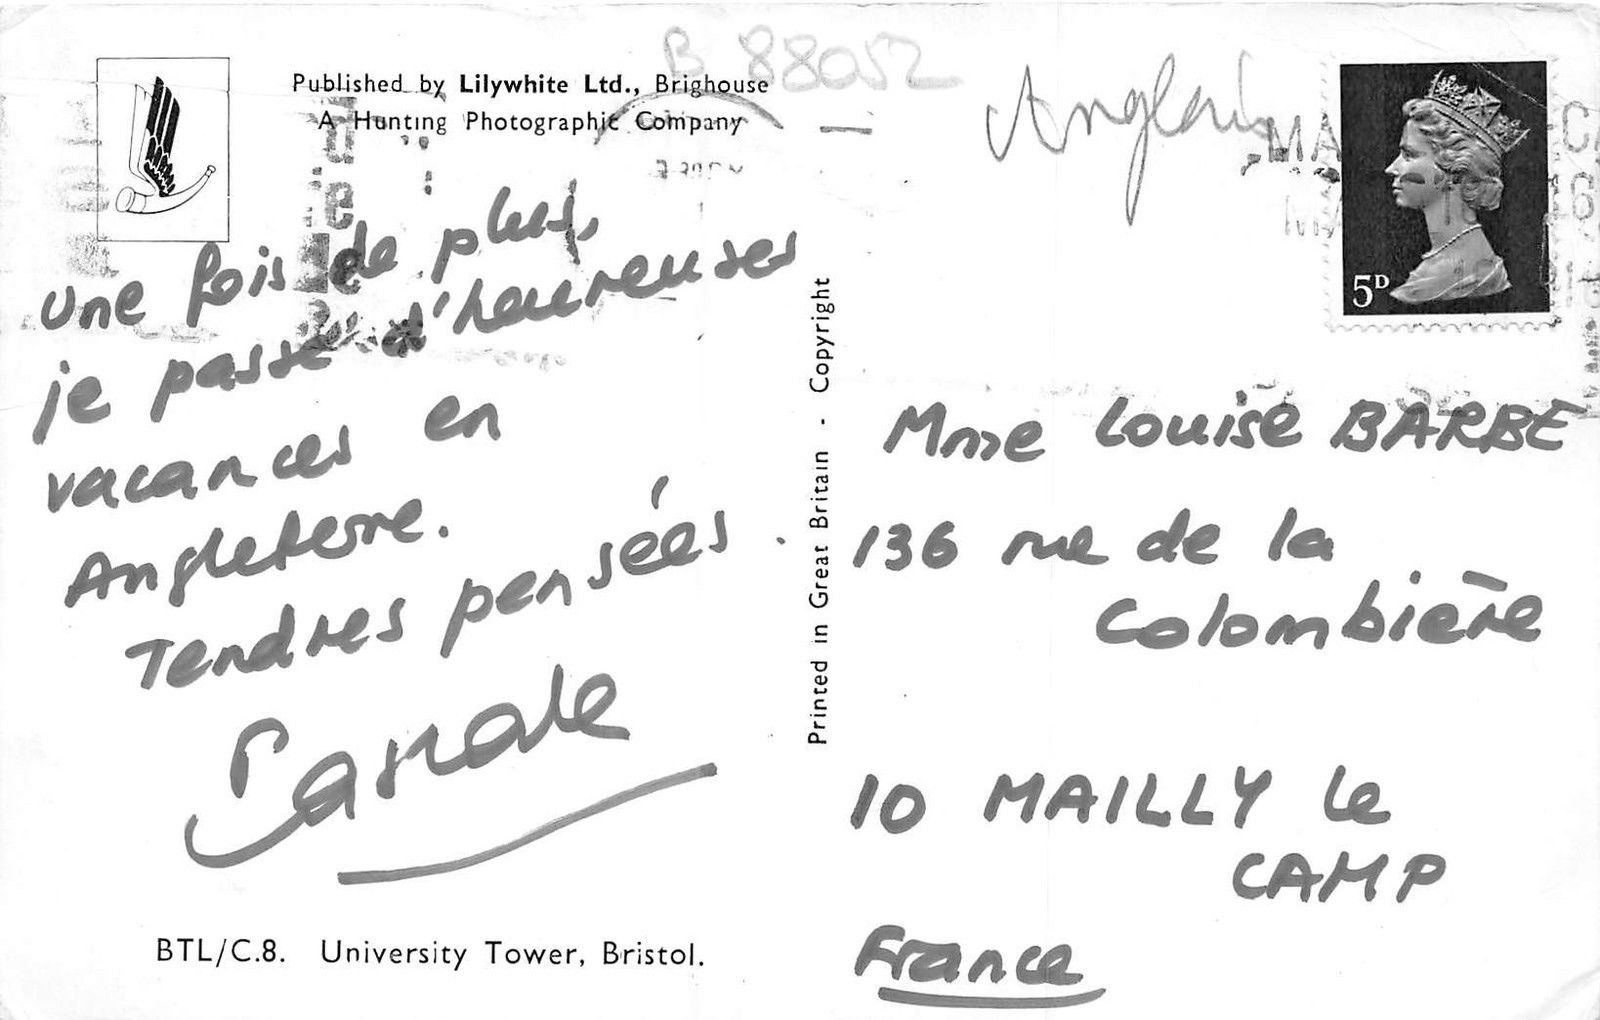 B 88052
Published by Lilywhite Ltd., Brighouse
A Hunting Photographic Company
Une fois de plus,
je passe d'heureuses
vacances en
Angleterre.
Tendres pensées.
Pascale
BTL/C.8. University Tower, Bristol.
Printed in Great Britain - Copyright
5D
Mme Louise BARBE
136 rue de la
Colombière
10 MAILLY le
CAMP
France